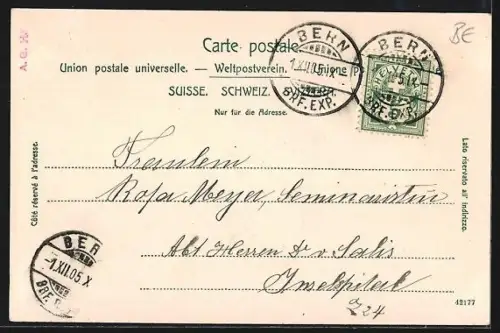 Carte postale.
Union postale universelle. — Weltpostverein. — Unione
SUISSE. SCHWEIZ.
Nur für die Adresse.
Côté réservé à l'adresse.
Lato riservato all' indirizzo.
A. G. 
BE
BERN
1.XII.05.IX
BRF.EXP.
BERN
BRF.EXP.
Fräulein
Rosa Meyer, Seminaristin
Abt Herren Dr v. Salis
Inselspital
Z 24
BER
-1.XII.05.X
BRF.
42177